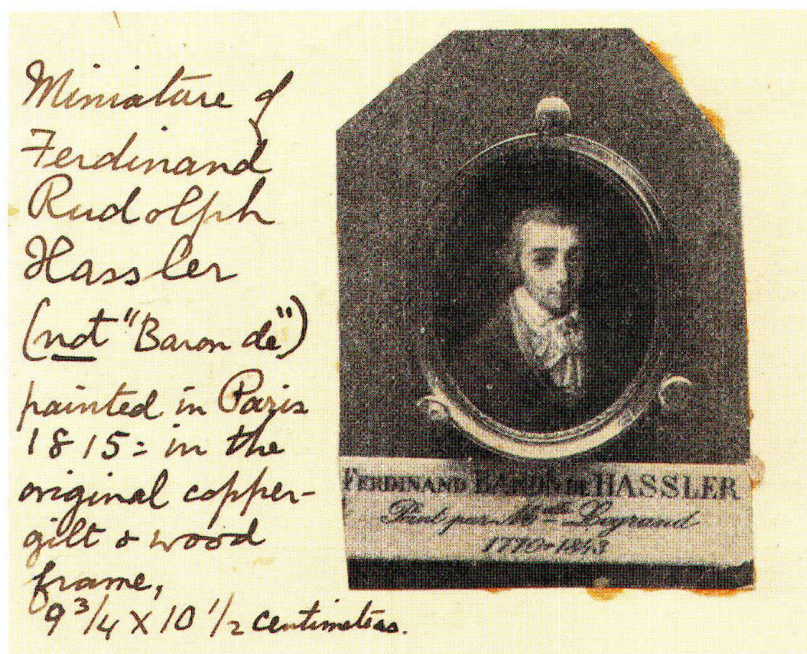 Miniature of
Ferdinand
Rudolph
Hassler
(not "Baron de")
painted in Paris
1815: in the
original copper-
gilt & wood
frame,
9 3/4 X 10 1/2 centimeters.
FERDINAND BARON DE HASSLER
Peint par Mlle Legrand
1770-1843